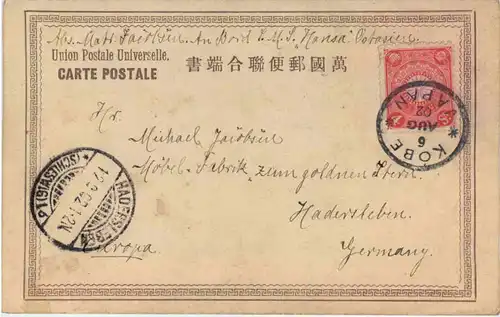 Abs. Matr. Jacobsen An Bord S.M.S. "Hansa" Ostasien
Union Postale Universelle.
CARTE POSTALE
書端合聯便郵國萬
KOBE
6
AUG
02
JAPAN
Hr.
Michael Jacobsen
Möbel-Fabrik "zum goldnen Stern"
Hadersleben
Germany.
Europa.
HADERSLEBEN
12.9.02. 1-2N
(SCHLESWIG)